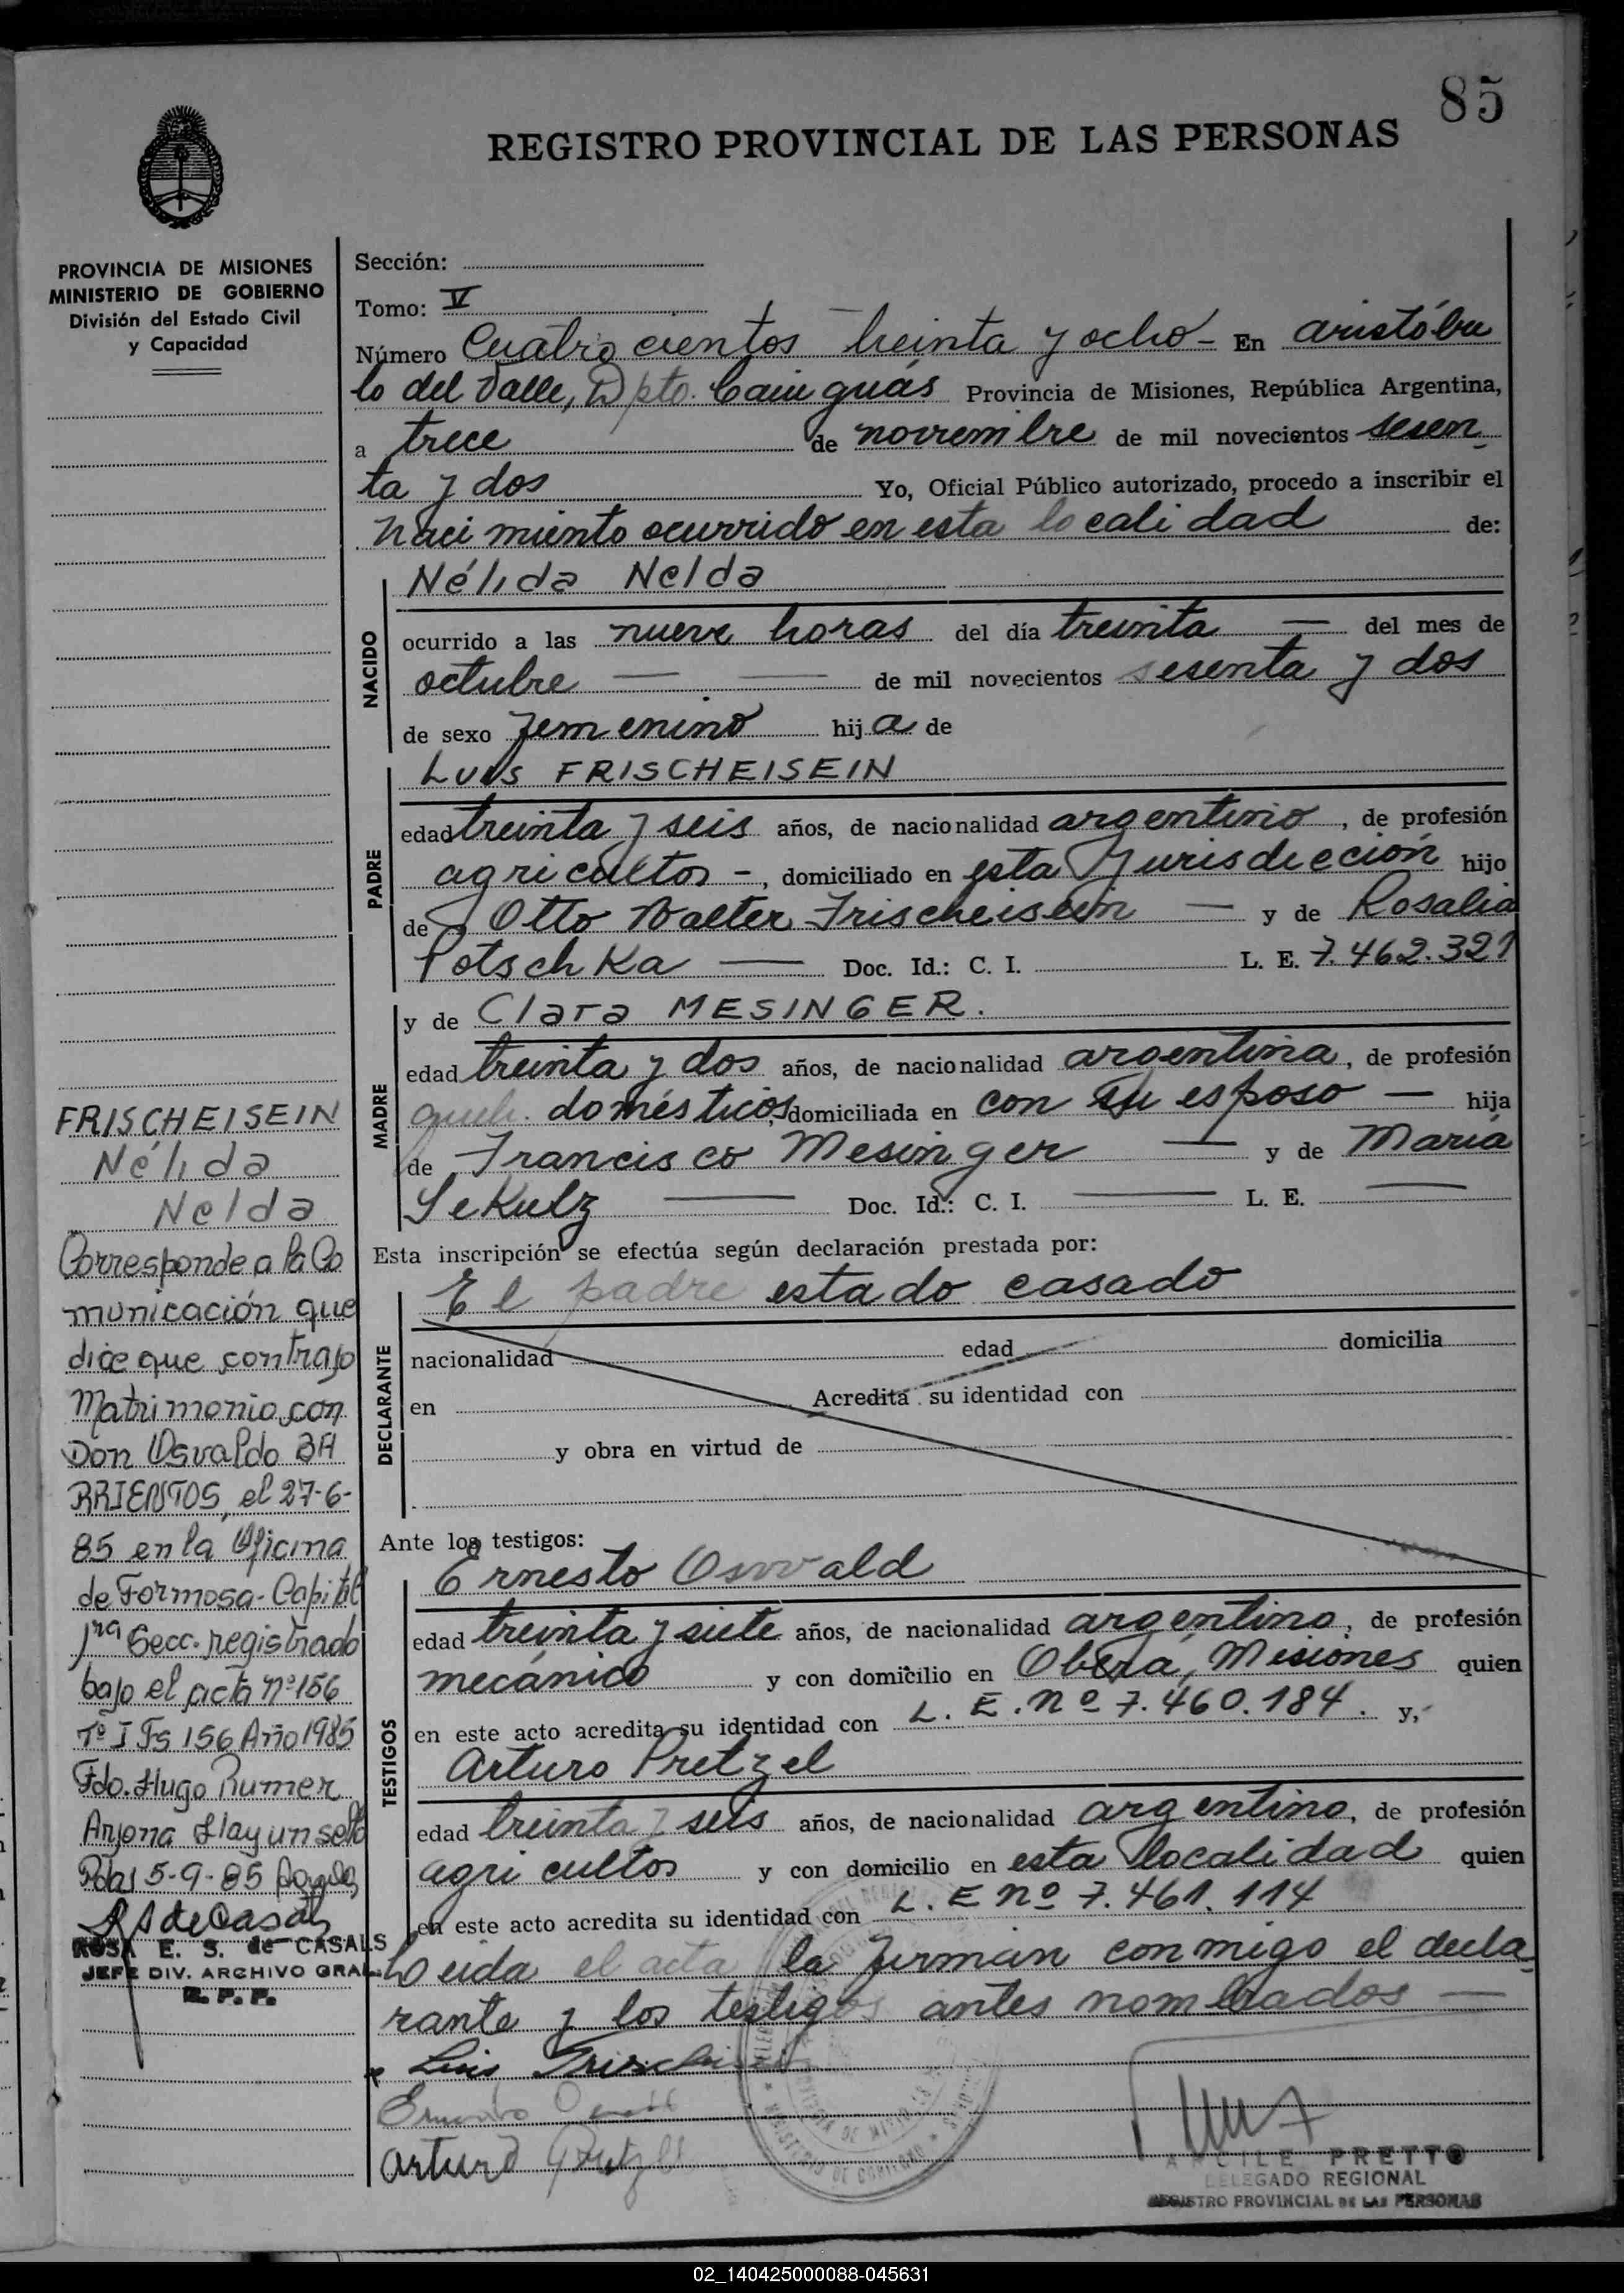 85
REGISTRO PROVINCIAL DE LAS PERSONAS
PROVINCIA DE MISIONES
MINISTERIO DE GOBIERNO
División del Estado Civil
y Capacidad
Sección:
Tomo: V
Número Cuatrocientos treinta y ocho - En Aristóbu
lo del Valle, Dpto. Cainguás Provincia de Misiones, República Argentina,
a trece de noviembre de mil novecientos sesen
ta y dos Yo, Oficial Público autorizado, procedo a inscribir el
nacimiento ocurrido en esta localidad de:
NACIDO
Nélida Nelda
ocurrido a las nueve horas del día treinta — del mes de
octubre — — de mil novecientos sesenta y dos
de sexo femenino hija de
PADRE
Luis FRISCHEISEIN
edad treinta y seis años, de nacionalidad argentino, de profesión
agricultor -, domiciliado en esta Jurisdicción hijo
de Otto Walter Frischeisein — y de Rosalia
Potschka — Doc. Id.: C. I. L. E. 7.462.321
MADRE
y de Clara MESINGER.
edad treinta y dos años, de nacionalidad argentina, de profesión
queh. domésticos, domiciliada en con su esposo — hija
de Francisco Mesinger — y de María
Sekulz — Doc. Id.: C. I. — L. E. —
Esta inscripción se efectúa según declaración prestada por:
DECLARANTE
El padre estado casado
nacionalidad edad domicilia
en Acredita su identidad con
y obra en virtud de
Ante los testigos:
TESTIGOS
Ernesto Oswald
edad treinta y siete años, de nacionalidad argentino, de profesión
mecánico y con domicilio en Oberá, Misiones quien
en este acto acredita su identidad con L. E. nº 7.460.184. y,
Arturo Pretzel
edad treinta y seis años, de nacionalidad argentino, de profesión
agricultor y con domicilio en esta localidad quien
en este acto acredita su identidad con L. E nº 7.461.114
Leida el acta la firman conmigo el decla
rante y los testigos antes nombrados —
Luis
Arturo Pretzel
PRETTO
DELEGADO REGIONAL
REGISTRO PROVINCIAL DE LAS PERSONAS
FRISCHEISEIN
Nélida
Nelda
Corresponde a la Co
municación que
dice que contrajo
Matrimonio con
Don Osvaldo BA
RRIENTOS, el 27-6-
85 en la Oficina
de Formosa-Capital
1ra Secc. registrado
bajo el acta nº 156
Tº I Fs 156 Año 1985
Fdo. Hugo Rumer
Arjona Hay un sello
Pdas 5-9-85
ROSA E. S. de CASALS
JEFE DIV. ARCHIVO GRAL.
R. P. P.
02_140425000088-045631